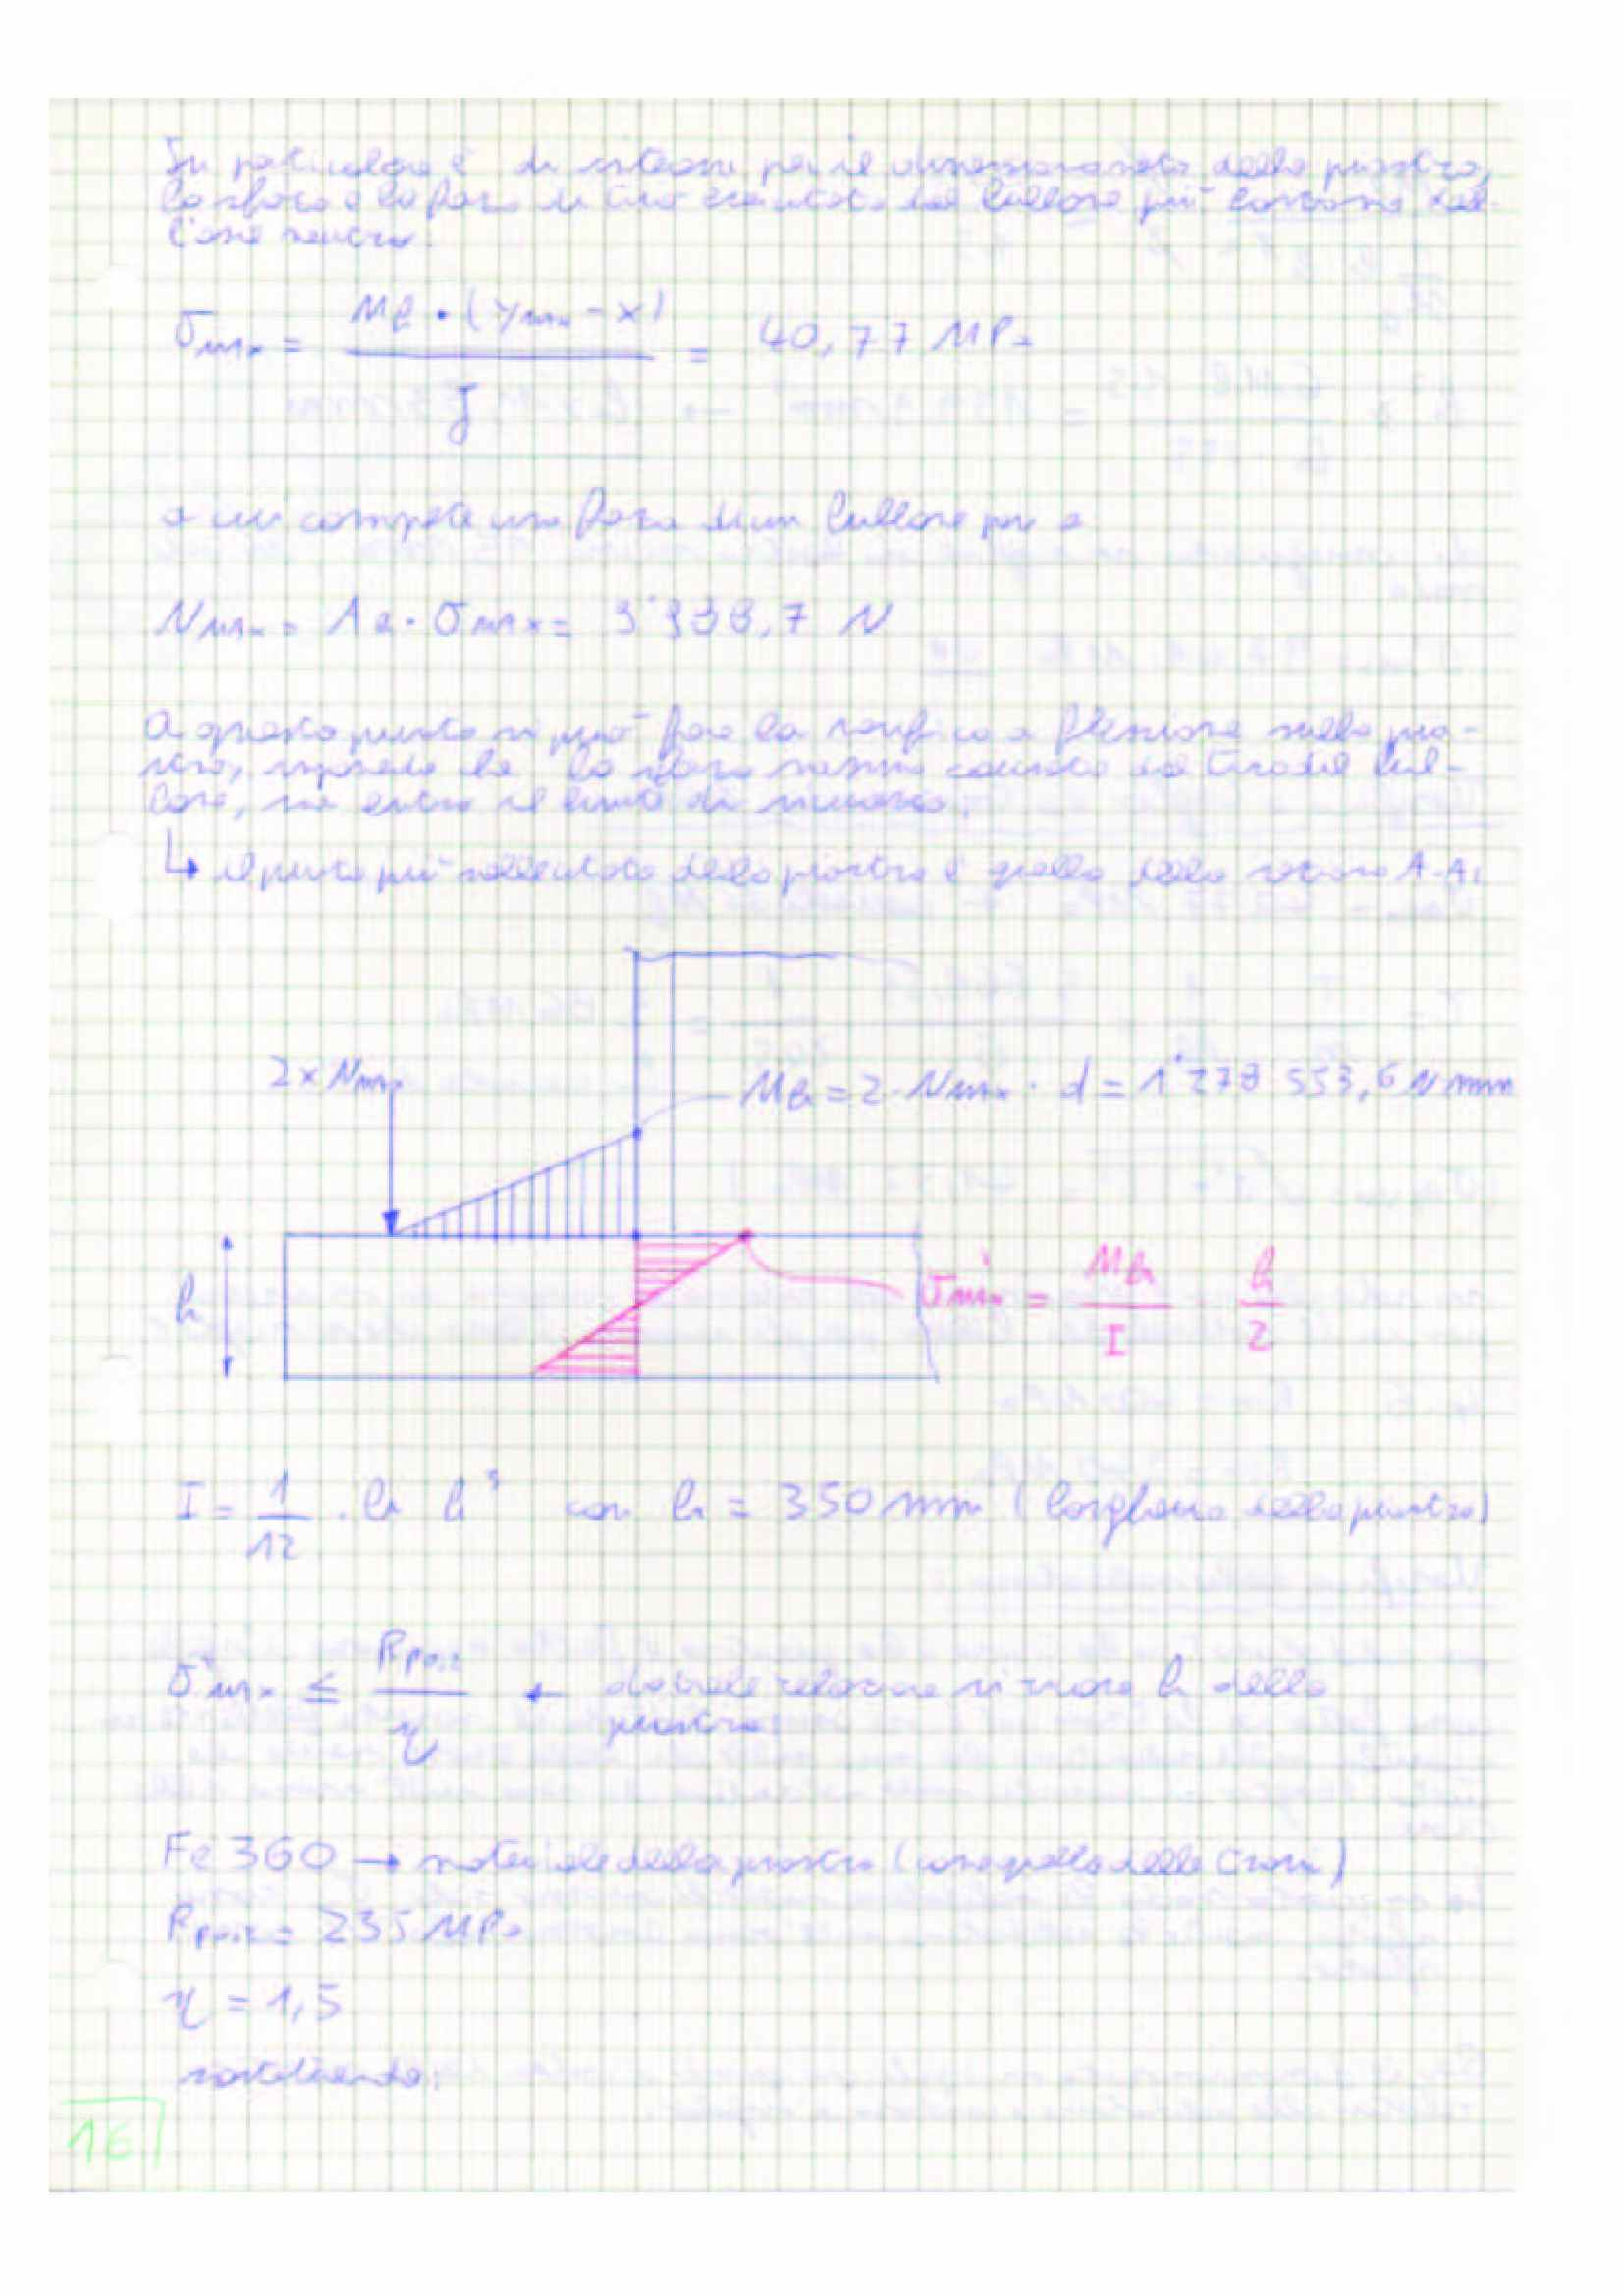 In particolare è di interesse per il dimensionamento della piastra,
lo sforzo e la forza di tiro esercitata dal bullone più lontano dal-
l'asse neutro.
σmax = Mf · (ymax - x) / J = 40,77 MPa
a cui compete una forza di un bullone pari a
Nmax = Ab · σmax = 9'988,7 N
A questo punto si può fare la verifica a flessione sulla pia-
stra, imponendo che lo sforzo massimo causato dal tiro del bul-
lone, sia entro il limite di sicurezza.
↳ il punto più sollecitato della piastra è quello della sezione A-A.
2 x Nmax
Mb = 2 · Nmax · d = 1'278 553,6 N mm
h
σmax = Mb / I h / 2
I = 1/12 · b h³ con b = 350 mm (larghezza della piastra)
σ*max ≤ Rp0,2 / η ← da tale relazione si trova h della
piastra.
Fe 360 → materiale della piastra (come quello delle travi)
Rp0,2 = 235 MPa
η = 1,5
sostituendo:
16